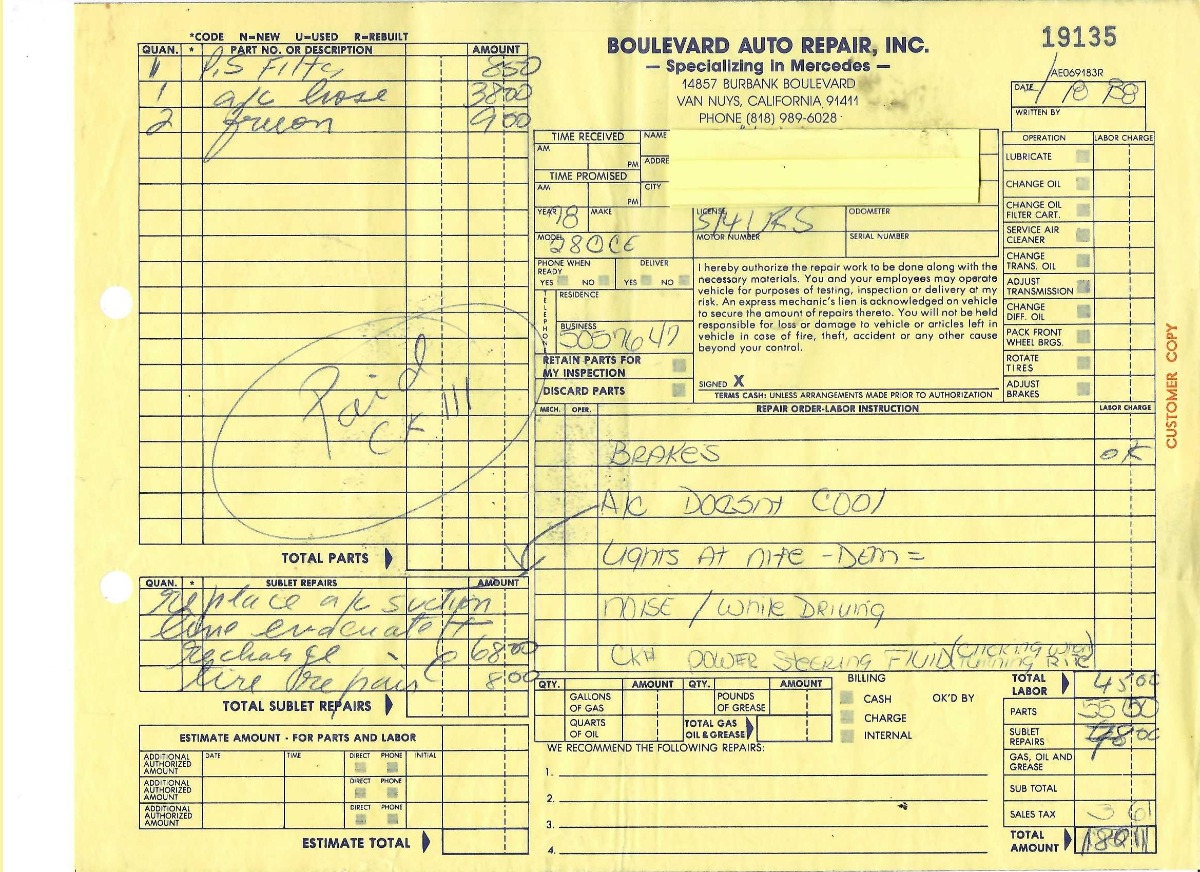 *CODE N=NEW U=USED R=REBUILT
QUAN. * PART NO. OR DESCRIPTION AMOUNT
1 P.S Filte 850
1 a/c hose 3800
2 freon 900
TOTAL PARTS
Paid
CK 111
QUAN. * SUBLET REPAIRS AMOUNT
replace a/c suction
line evacuate &
recharge - 6800
tire repair 8.00
TOTAL SUBLET REPAIRS
ESTIMATE AMOUNT - FOR PARTS AND LABOR
ADDITIONAL AUTHORIZED AMOUNT DATE TIME DIRECT PHONE INITIAL
ADDITIONAL AUTHORIZED AMOUNT DIRECT PHONE
ADDITIONAL AUTHORIZED AMOUNT DIRECT PHONE
ESTIMATE TOTAL
BOULEVARD AUTO REPAIR, INC.
— Specializing in Mercedes —
14857 BURBANK BOULEVARD
VAN NUYS, CALIFORNIA 91411
PHONE (818) 989-6028
19135
AE069183R
DATE 1/18 88
WRITTEN BY
TIME RECEIVED NAME
AM PM ADDRE
TIME PROMISED
AM PM CITY
YEAR 78 MAKE LICENSE 541URS ODOMETER
MODEL 280CE MOTOR NUMBER SERIAL NUMBER
PHONE WHEN READY DELIVER
YES NO YES NO
TELEPHONE
RESIDENCE
BUSINESS
5057647
RETAIN PARTS FOR
MY INSPECTION
DISCARD PARTS
I hereby authorize the repair work to be done along with the
necessary materials. You and your employees may operate
vehicle for purposes of testing, inspection or delivery at my
risk. An express mechanic's lien is acknowledged on vehicle
to secure the amount of repairs thereto. You will not be held
responsible for loss or damage to vehicle or articles left in
vehicle in case of fire, theft, accident or any other cause
beyond your control.
SIGNED X
TERMS CASH: UNLESS ARRANGEMENTS MADE PRIOR TO AUTHORIZATION
OPERATION LABOR CHARGE
LUBRICATE
CHANGE OIL
CHANGE OIL
FILTER CART.
SERVICE AIR
CLEANER
CHANGE
TRANS. OIL
ADJUST
TRANSMISSION
CHANGE
DIFF. OIL
PACK FRONT
WHEEL BRGS.
ROTATE
TIRES
ADJUST
BRAKES
CUSTOMER COPY
MECH. OPER. REPAIR ORDER-LABOR INSTRUCTION LABOR CHARGE
BRAKES OK
A/C DOESNT COOl
Lights At nite - Dem =
NOISE / While DRIVING
CK# POWER STEERING FLUID (Clicking when turning Rite
QTY. AMOUNT QTY. AMOUNT
GALLONS OF GAS POUNDS OF GREASE
QUARTS OF OIL TOTAL GAS OIL & GREASE
BILLING
CASH OK'D BY
CHARGE
INTERNAL
WE RECOMMEND THE FOLLOWING REPAIRS:
1.
2.
3.
4.
TOTAL LABOR 4500
PARTS 5550
SUBLET REPAIRS
GAS, OIL AND GREASE
SUB TOTAL
SALES TAX 3 61
TOTAL AMOUNT 18011